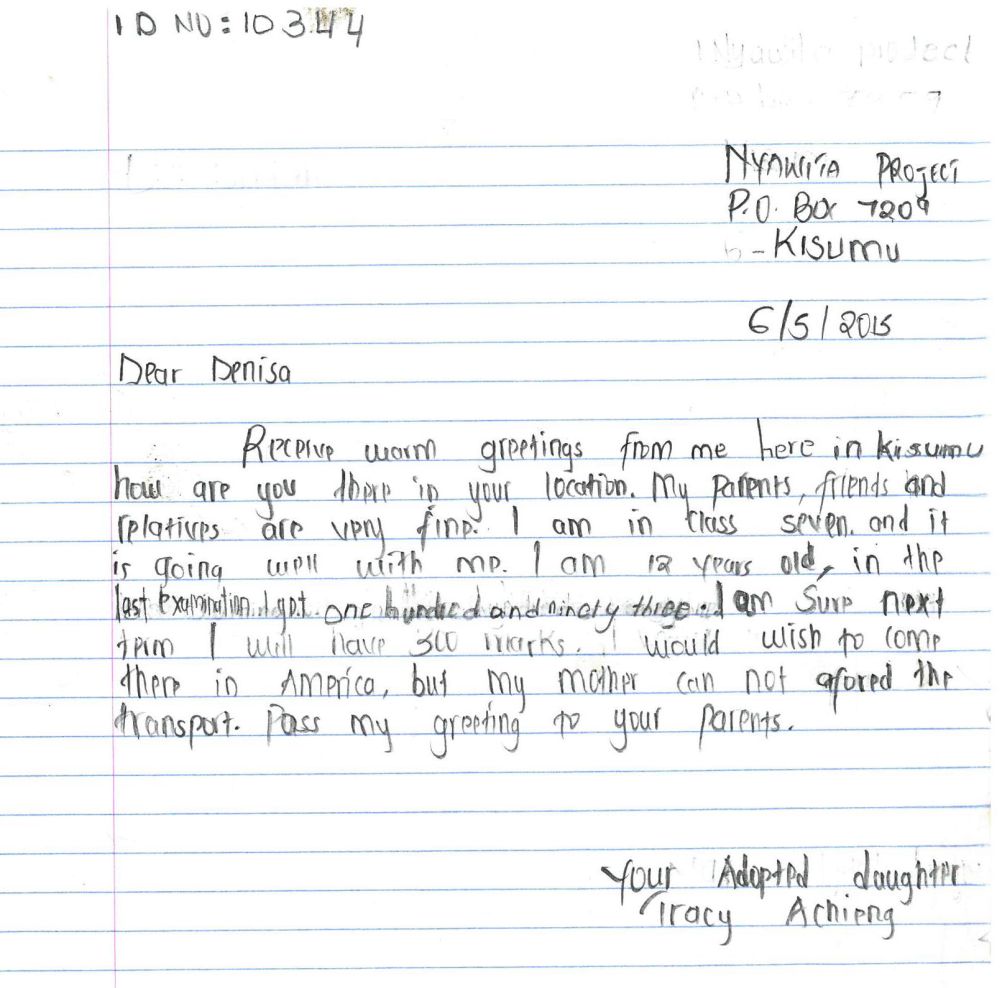 ID NO: 10344
Nyawita project
NYAWITA PROJECT
P.O. Box 7209
- KISUMU
6/5/2015
Dear Denisa
Receive warm greetings from me here in kisumu
how are you there in your location. My parents, friends and
relatives are very fine. I am in class seven. and it
is going well with me. I am 12 years old, in the
last examination I got one hundred and ninety three. I am Sure next
term I will have 300 marks. I would wish to come
there in America, but my mother can not afored the
transport. Pass my greeting to your parents.
Your Adopted daughter
Tracy Achieng